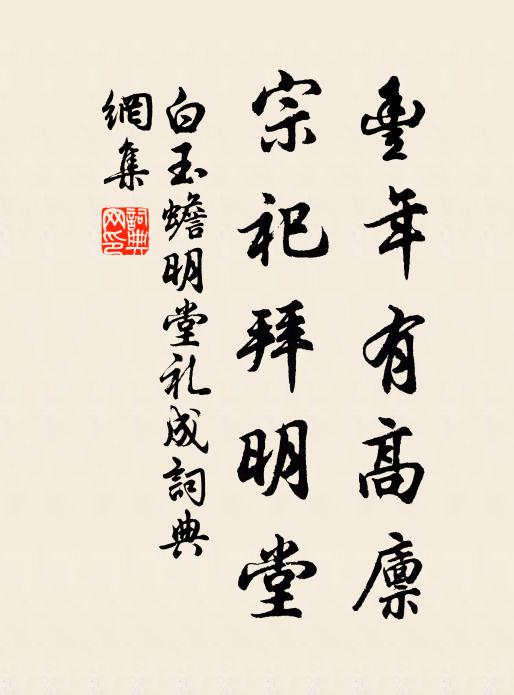 豊年有高廩
宗祀拜明堂
白玉蟾明堂礼成詞典
網集
詞典
网印